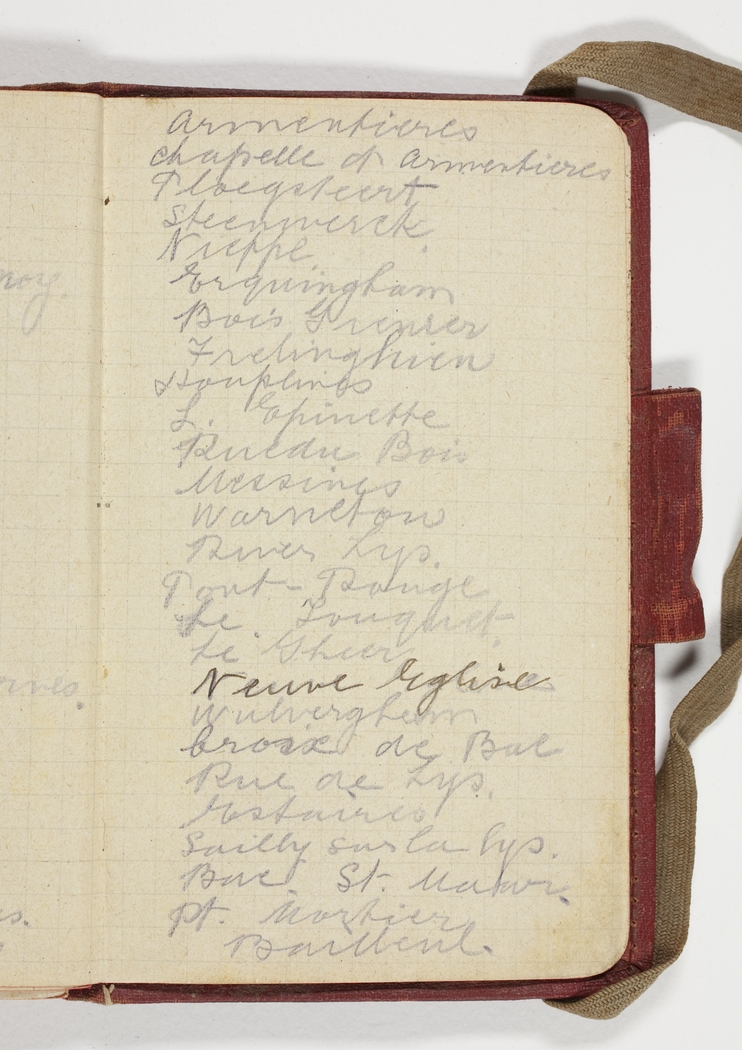 noy.
Armentieres
Chapelle d Armentieres
Ploegsteert
Steenwerck.
Nieppe
Erquingham
Bois Grenier
Frelinghien
Houplines
L. Epinette
Rue du Bois
Messines
Warneton
River Lys.
Pont-Rouge
Le Touquet.
Le Gheer
Neuve Eglise
Wulverghem
Croix de Bac
Rue de Lys.
Estaires
Sailly sur la Lys.
Bac St. Mawr.
Pt. Mortier
Bailleul.